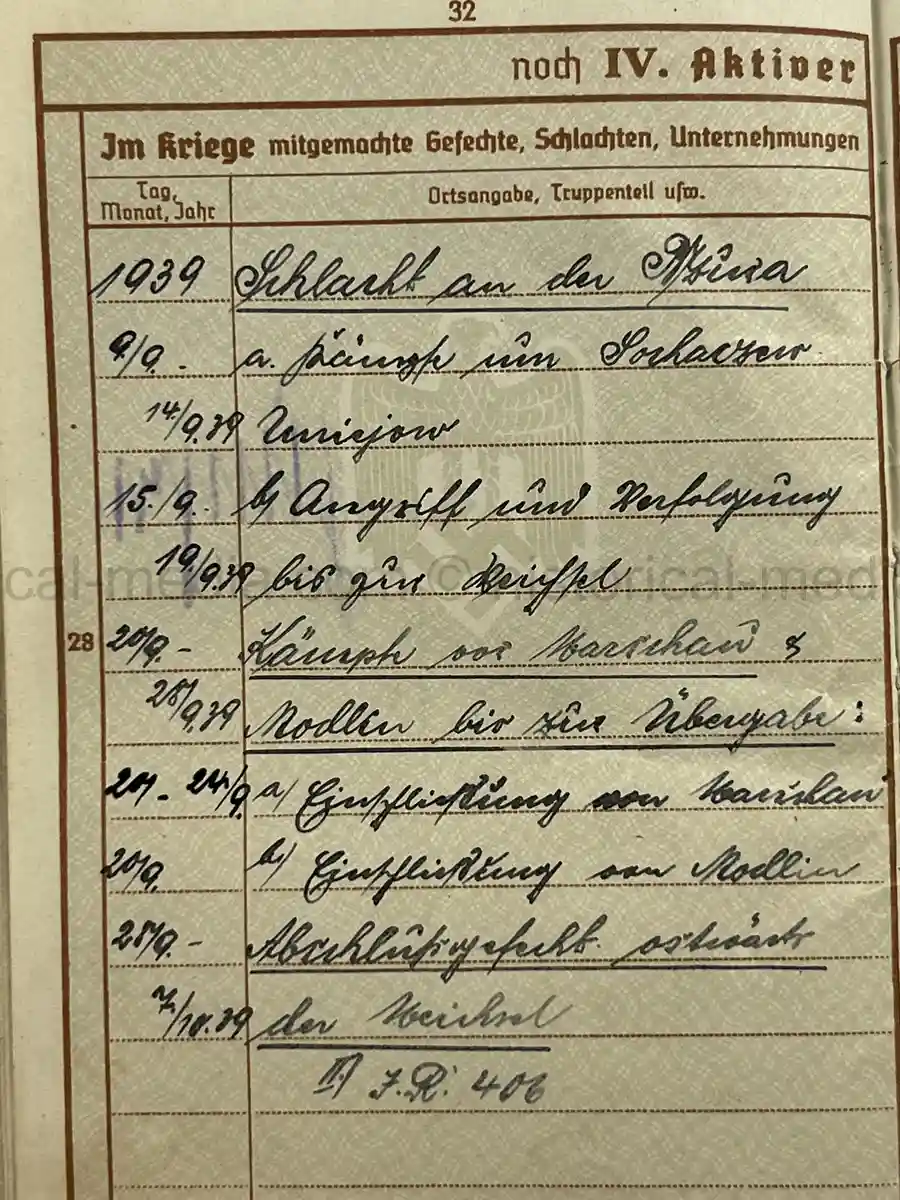 32
noch IV. Aktiver
Im Kriege mitgemachte Gefechte, Schlachten, Unternehmungen
Tag, Monat, Jahr
Ortsangabe, Truppenteil usw.
1939 Schlacht an der Bzura
9/9. - a. Kämpfe um Sochaczew
14./9.39 Uniejow
15./9. b) Angriff und Verfolgung
19./9.39 bis zur Weichsel
28
20/9. - Kämpfe vor Warschau &
28/9.39 Modlin bis zur Übergabe:
20/ - 24./9. a) Einschließung von Warschau
20/9. b) Einschließung von Modlin
28/9. - Abschlußgefecht ostwärts
7./10.39 der Weichsel
II) J.R. 406